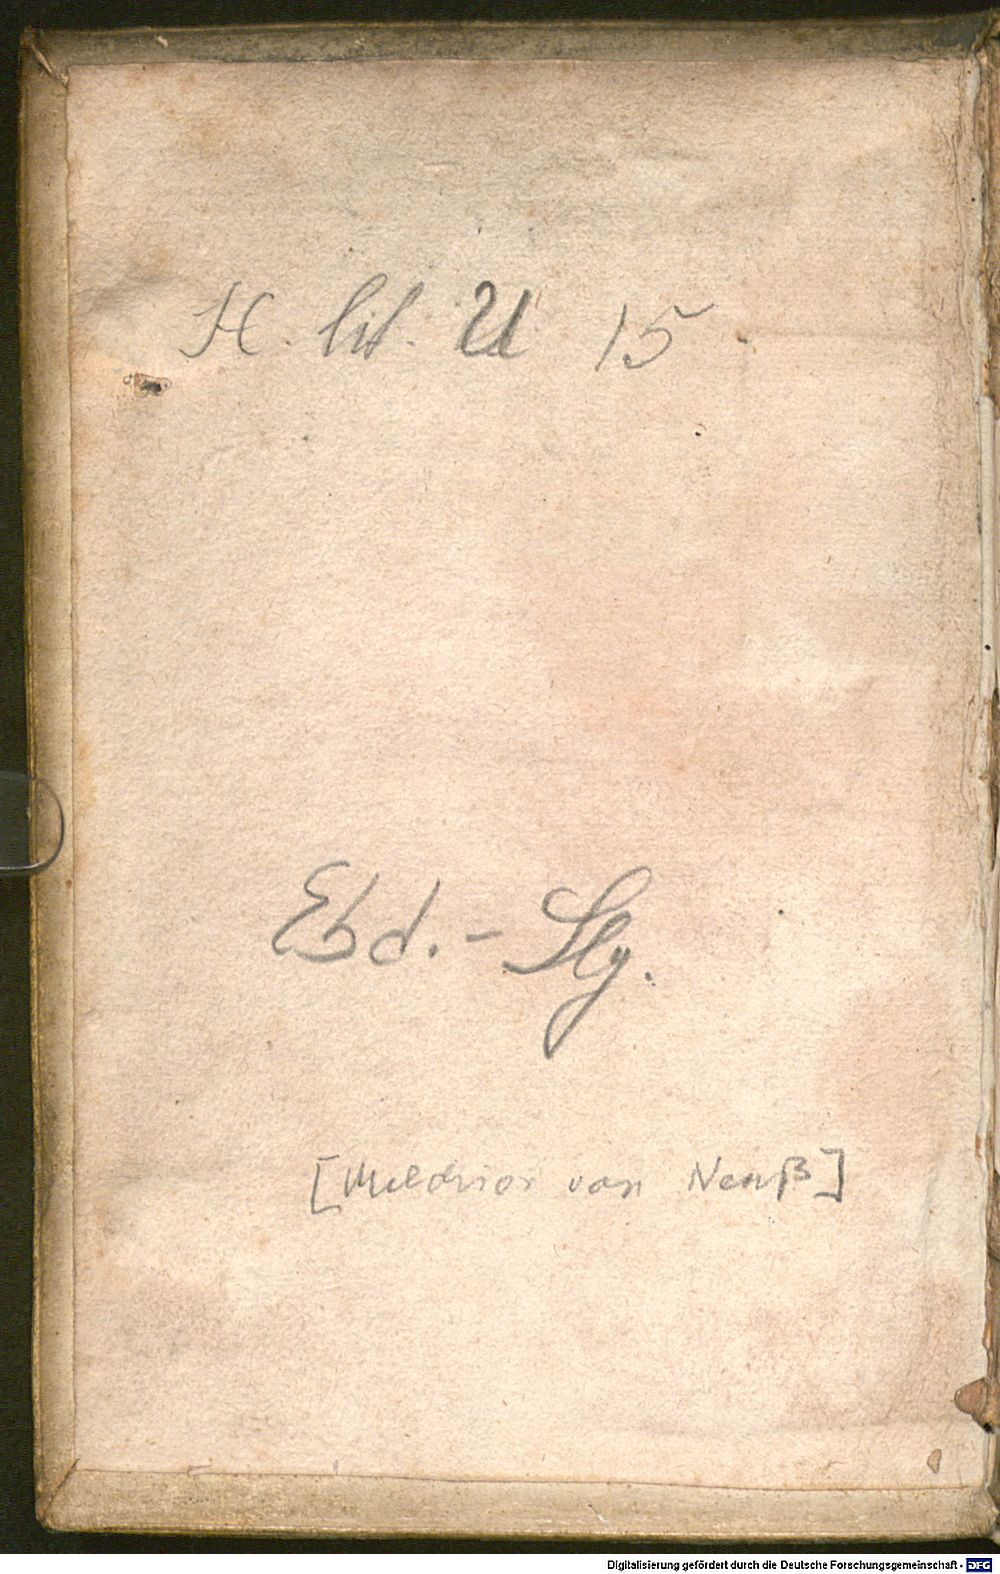 H. lit. U 15
Ebd.-Slg.
[Melchior von Neuß]
Digitalisierung gefördert durch die Deutsche Forschungsgemeinschaft - DFG